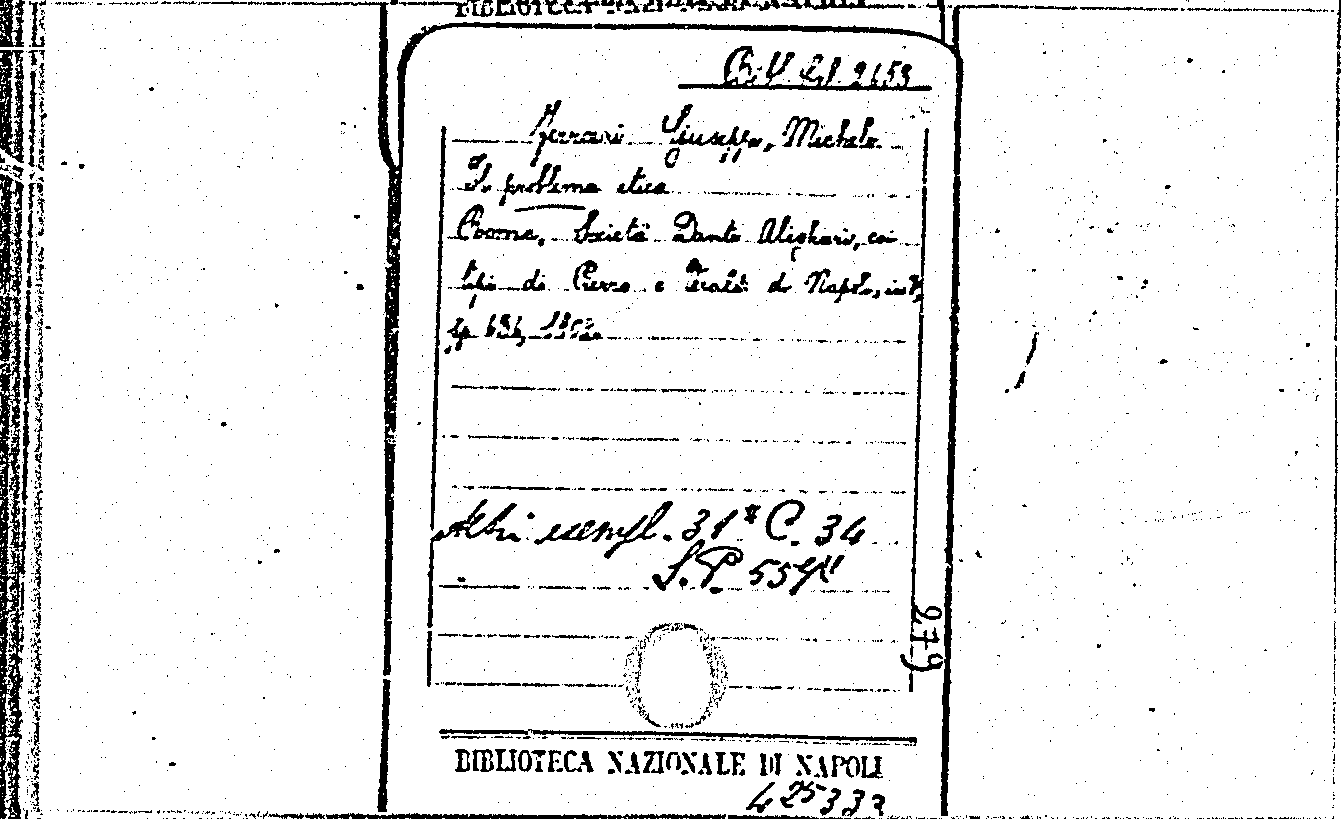 BIBLIOTECA NAZIONALE DI NAPOLI
2153
Ferrari Giuseppe, Michele
Il problema etico
Roma, Società Dante Alighieri, coi
tipi di Pierro e Veraldi di Napoli, in 8,
pp.
Altri esempl. 31* C. 34
S.P.
279
BIBLIOTECA NAZIONALE DI NAPOLI
425333